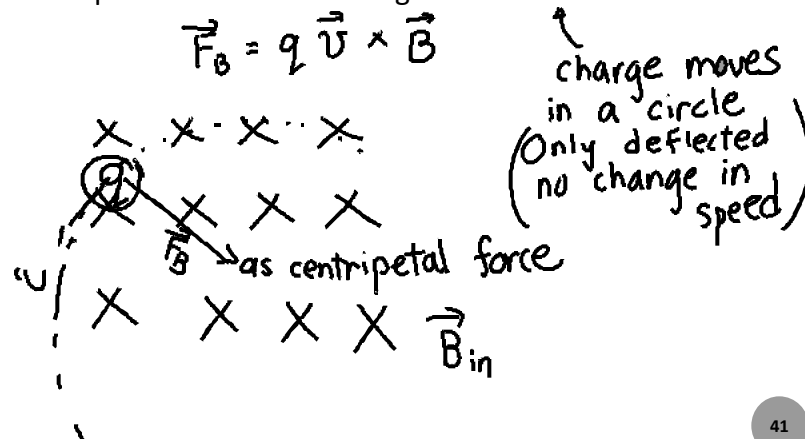 F_B = q v × B
charge moves
in a circle
(Only deflected
no change in
speed)
× × × ×
q
× × ×
F_B
as centripetal force
v
× × × ×
B_in
41